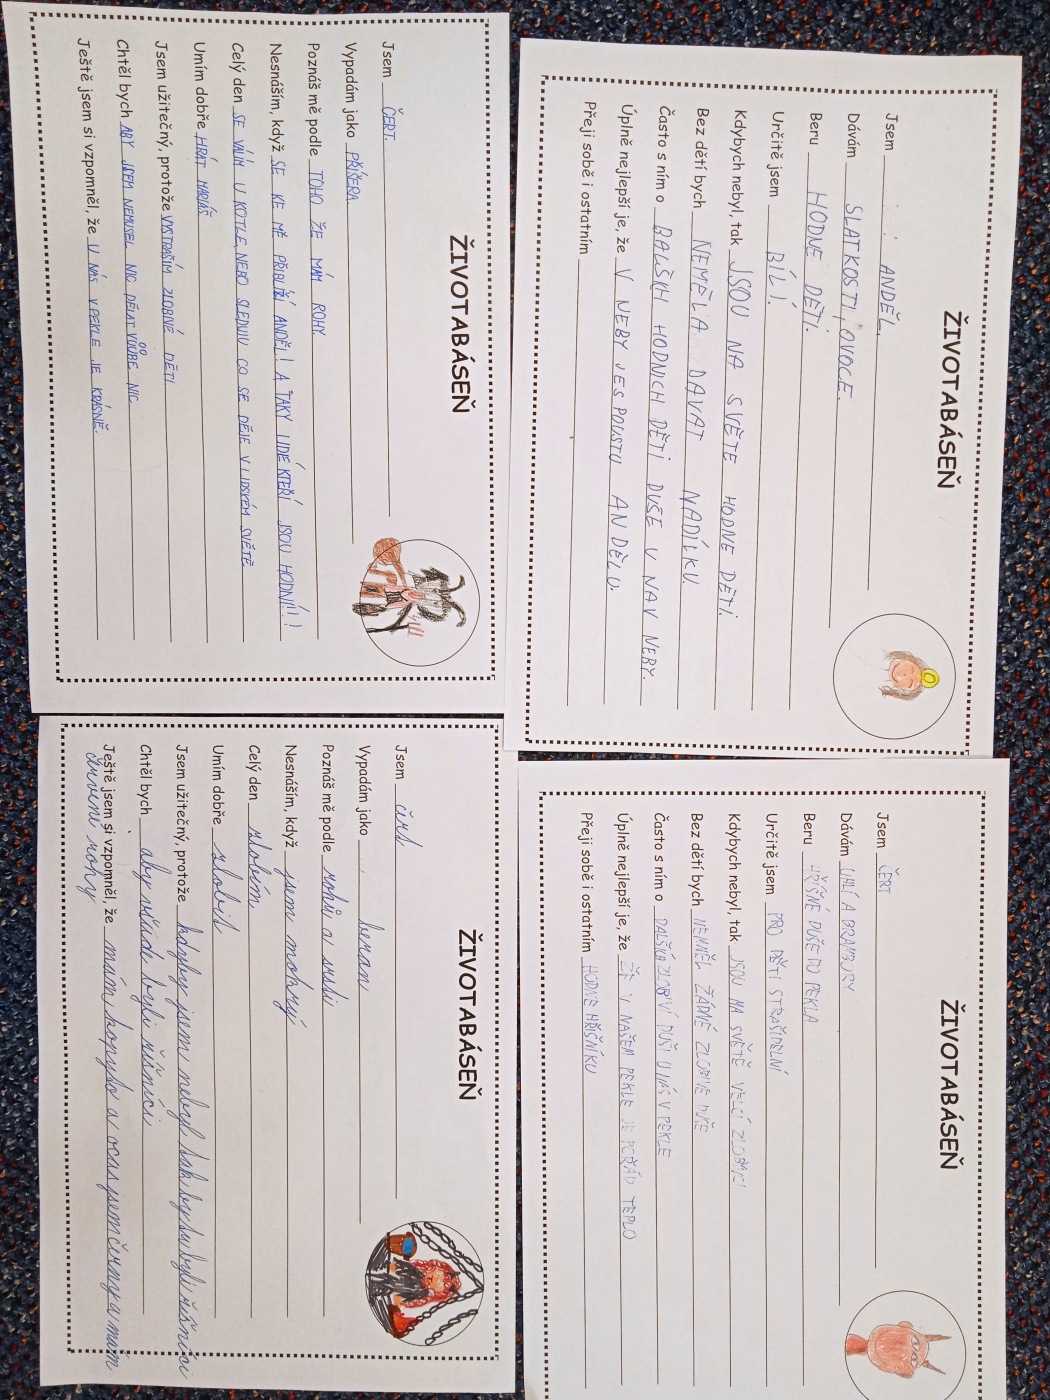 ŽIVOTABÁSEŇ
Jsem ČERT.
Vypadám jako PŘÍŠERA
Poznáš mě podle TOHO ŽE MÁM ROHY
Nesnáším, když SE KE MĚ PŘIBLÍŽÍ ANDĚL! A TAKY LIDÉ KTEŘÍ JSOU HODNÍ!!!
Celý den SE VÁLÍM U KOTLE, NEBO SLEDUJU CO SE DĚJE V LIDSKÉM SVĚTĚ
Umím dobře HRÁT MARIÁŠ
Jsem užitečný, protože VYSTRAŠÍM ZLOBIVÉ DĚTI
Chtěl bych ABY JSEM NEMUSEL NIC DĚLAT VŮŮBE NIC.
Ještě jsem si vzpomněl, že U NÁS V PEKLE JE KRÁSNĚ.
ŽIVOTABÁSEŇ
Jsem ANDĚL.
Dávám SLATKOSTI, OVOCE.
Beru HODNE DĚTI.
Určitě jsem BÍLÍ.
Kdybych nebyl, tak JSOU NA SVĚTE HODNE DĚTI.
Bez dětí bych NEMĚLA DAVAT NADÍLKU.
Často s ním o BALŠKH HODNICH DĚTI DUŠE U NAV NEBY.
Úplně nejlepší je, že V NEBY JES POUSTU ANDĚLU.
Přeji sobě i ostatním
ŽIVOTABÁSEŇ
Jsem čert
Vypadám jako beran
Poznáš mě podle rohů a srsti
Nesnáším, když jsem mokrý
Celý den zlobím
Umím dobře zlobit
Jsem užitečný, protože kdyby jsem nebyl tak by tu byli říšníci
Chtěl bych aby všude byli říšníci
Ještě jsem si vzpomněl, že mám kopyto a ocas jsem černý a mám
červené rohy
ŽIVOTABÁSEŇ
Jsem ČERT
Dávám UHLÍ A BRAMBURY
Beru HŘÍŠNÉ DUŠE DO PEKLA
Určitě jsem PRO DĚTI STRAŠIDELNÍ
Kdybych nebyl, tak JSOU NA SVĚTĚ VELCÍ ZLOBIČI
Bez dětí bych NEMNĚL ŽÁDNÉ ZLOBIVE DUŠE
Často s ním o DALŠÍKH ZLOBIVÍ DUŠI U NÁS V PEKLE
Úplně nejlepší je, že ŽE V NAŠEM PEKLE JE POŘÁD TEPLO
Přeji sobě i ostatním HODNE HŘÍŠNÍKU